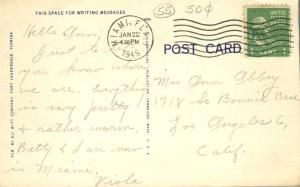 THIS SPACE FOR WRITING MESSAGES
55
50¢
MIAMI, FLA.
JAN 22
4 30 PM
1945
POST CARD
Hello Ann;
Just to let
you know where
we are. Everything
is very pretty
& rather warm.
Betty & I are now
in Miami.
Viola
Miss Ann Abbey
1718 So Bonnie Brae
Los Angeles 6,
Calif.
PUB. BY ELI WITT COMPANY, FORT LAUDERDALE, FLORIDA